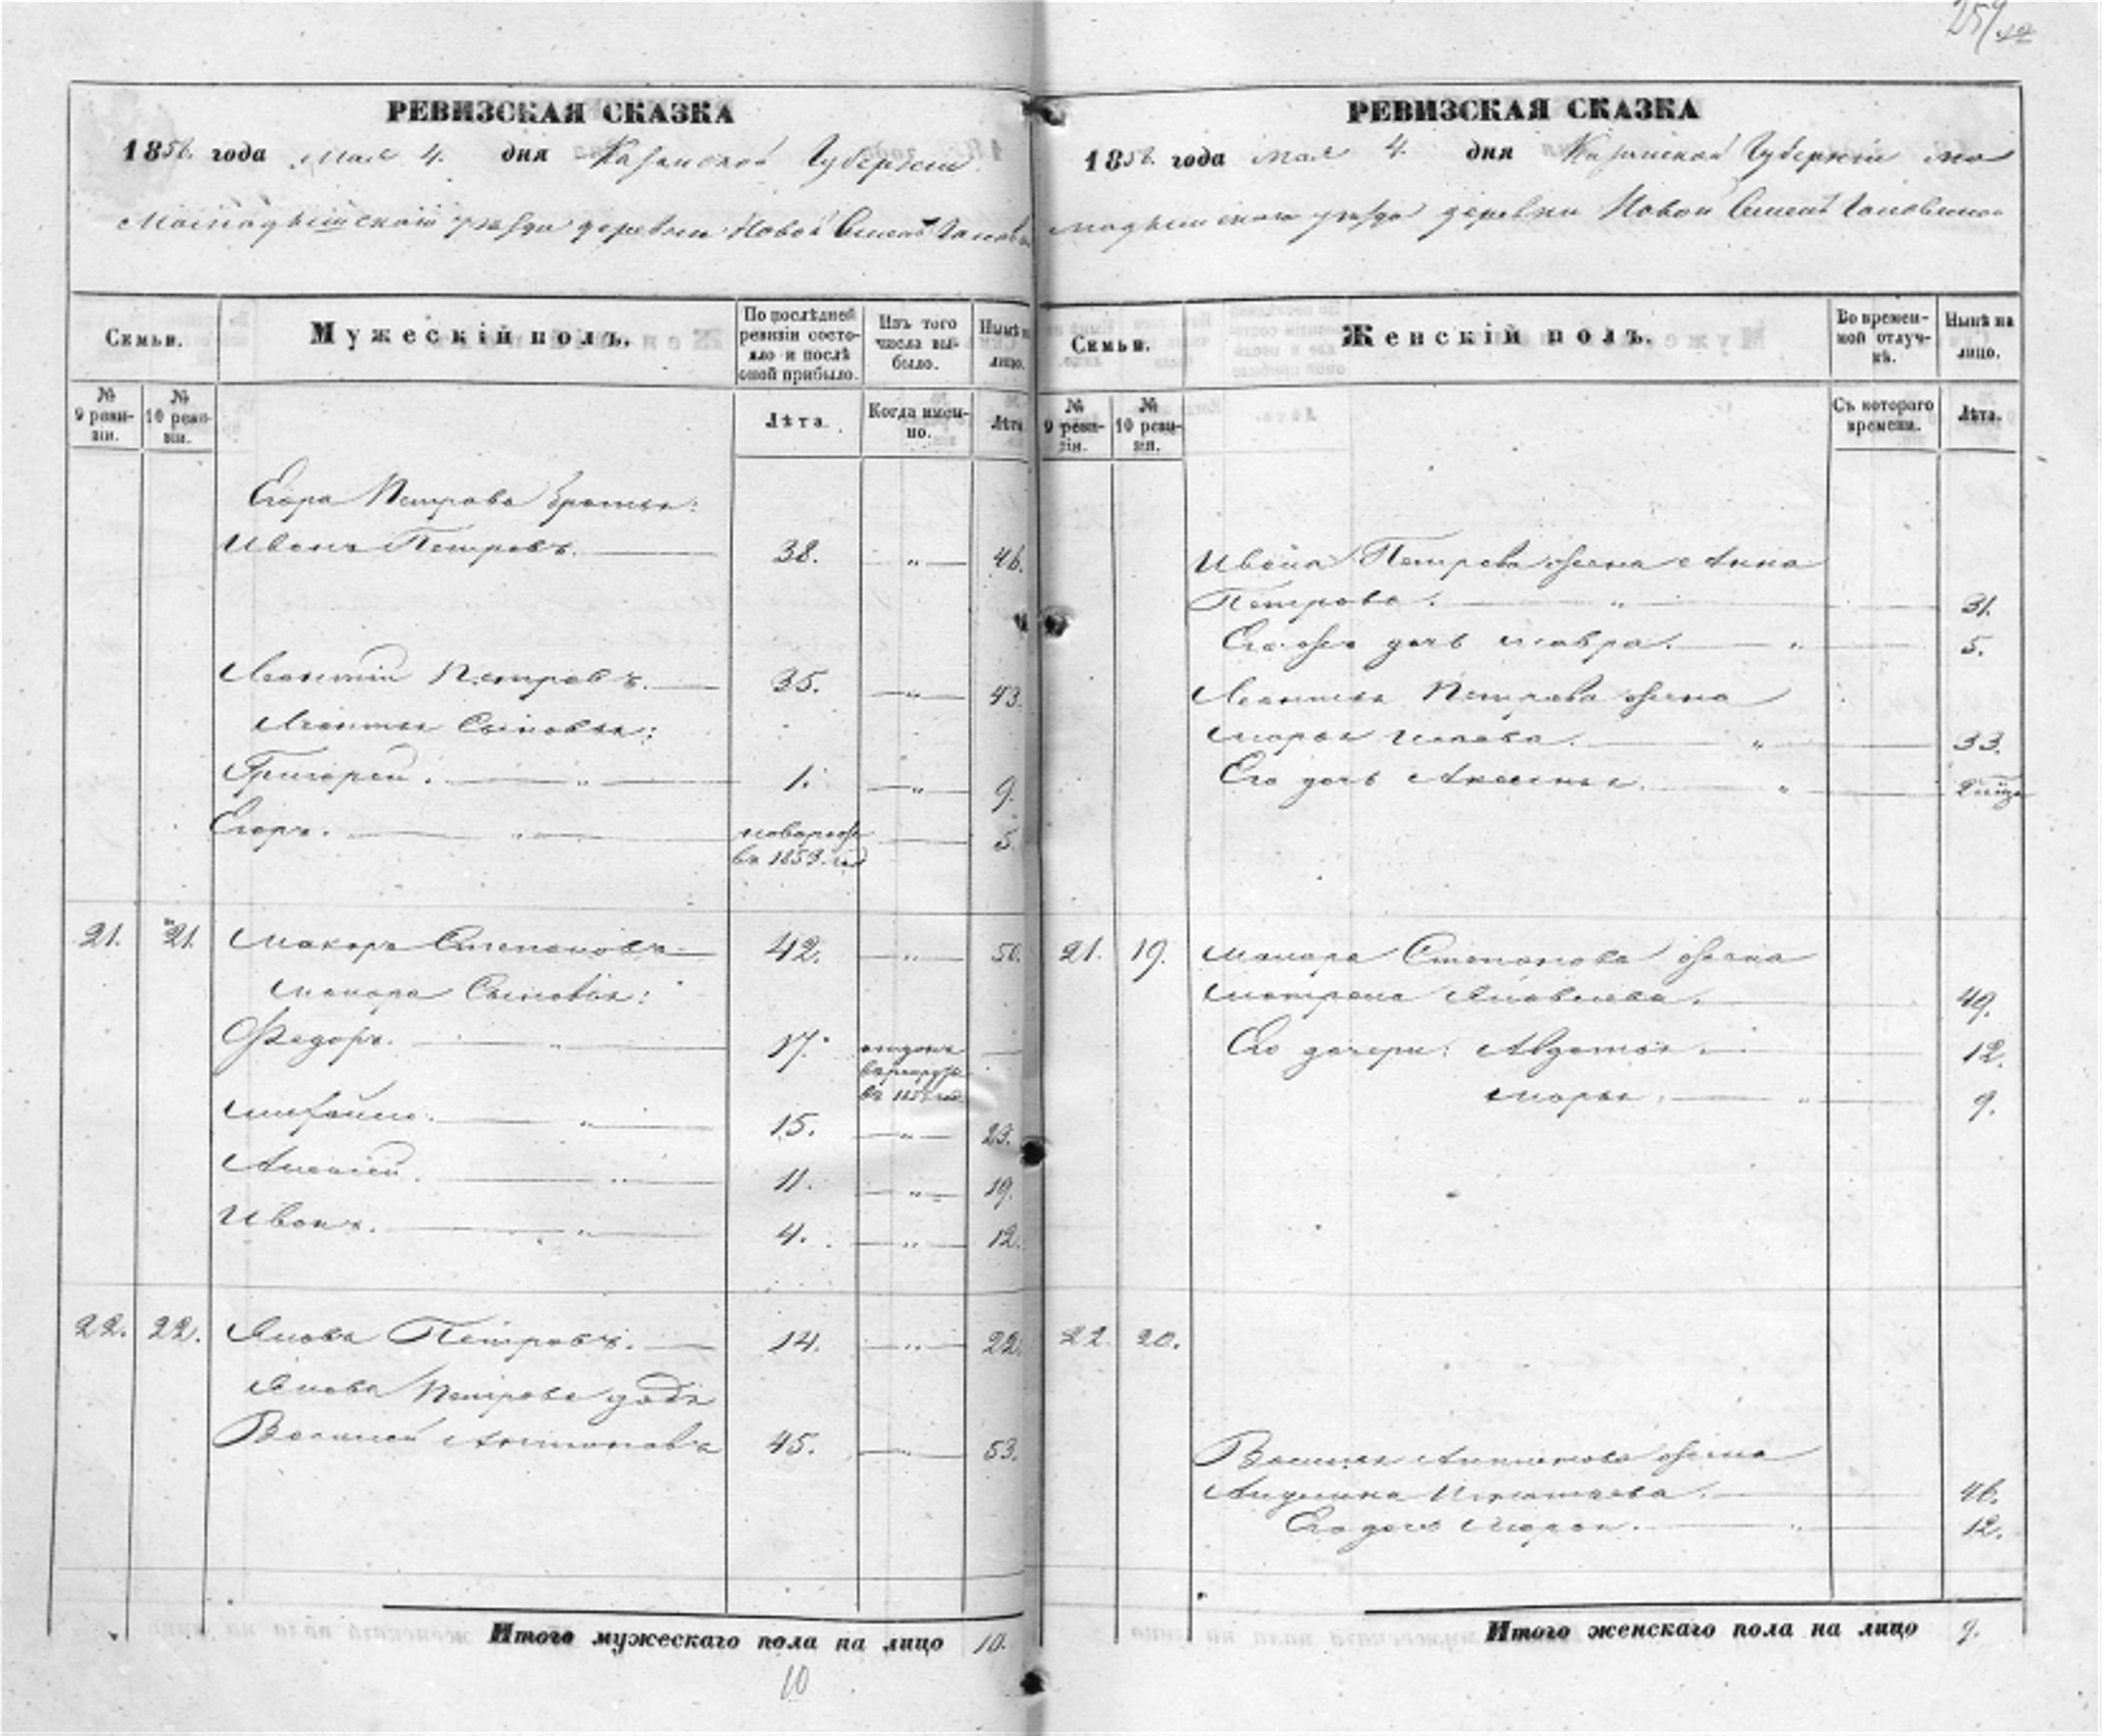 РЕВИЗСКАЯ СКАЗКА
1858. года Мая 4. дня Казанской Губернии
уезда деревни Новой
Семьи.
Мужескій полъ.
По послѣдней ревизіи состояло и послѣ оной прибыло.
Изъ того числа выбыло.
Нынѣ на лицо.
№ 9 ревизіи.
№ 10 ревизіи.
Лѣта.
Когда именно.
Лѣта
Егора Петрова братья:
Иванъ Петровъ. 38. „ 46.
Леонтий Петровъ. 35. „ 43.
Леонтья Сыновья:
Григорей. „ 1. „ 9.
Егоръ. „ 5.
21. 21. Макаръ Степановъ 42. „ 50.
Макара Сыновья:
Федоръ. „ 17.
Михайло. „ 15. „ 23.
Алексей. „ 11. „ 19.
Иванъ. „ 4. „ 12.
22. 22. Яковъ Петровъ. 14. „ 22.
Якова Петрова дядя
Василей Антоновъ 45. „ 53.
Итого мужескаго пола на лицо 10.
10
РЕВИЗСКАЯ СКАЗКА
1858. года Мая 4. дня Казанской Губернии Ма
уезда деревни Новой
Семьи.
Женскій полъ.
Во временной отлучкѣ.
Нынѣ на лицо.
№ 9 ревизіи.
№ 10 ревизіи.
Съ котораго времени.
Лѣта.
Ивана Петрова жена Анна
Петрова. „ 31.
Его же дочь Мавра. „ 5.
Леонтья Петрова жена
Марья 33.
Его дочь Аксинья. „
21. 19. Макара Степанова жена
Матрена Яковлева. 49.
Его дочери: Авдотья. 12.
Марья. „ 9.
22. 20.
Василья Антонова жена
Акулина Игнатьева. 46.
Его дочь „ 12.
Итого женскаго пола на лицо 9.